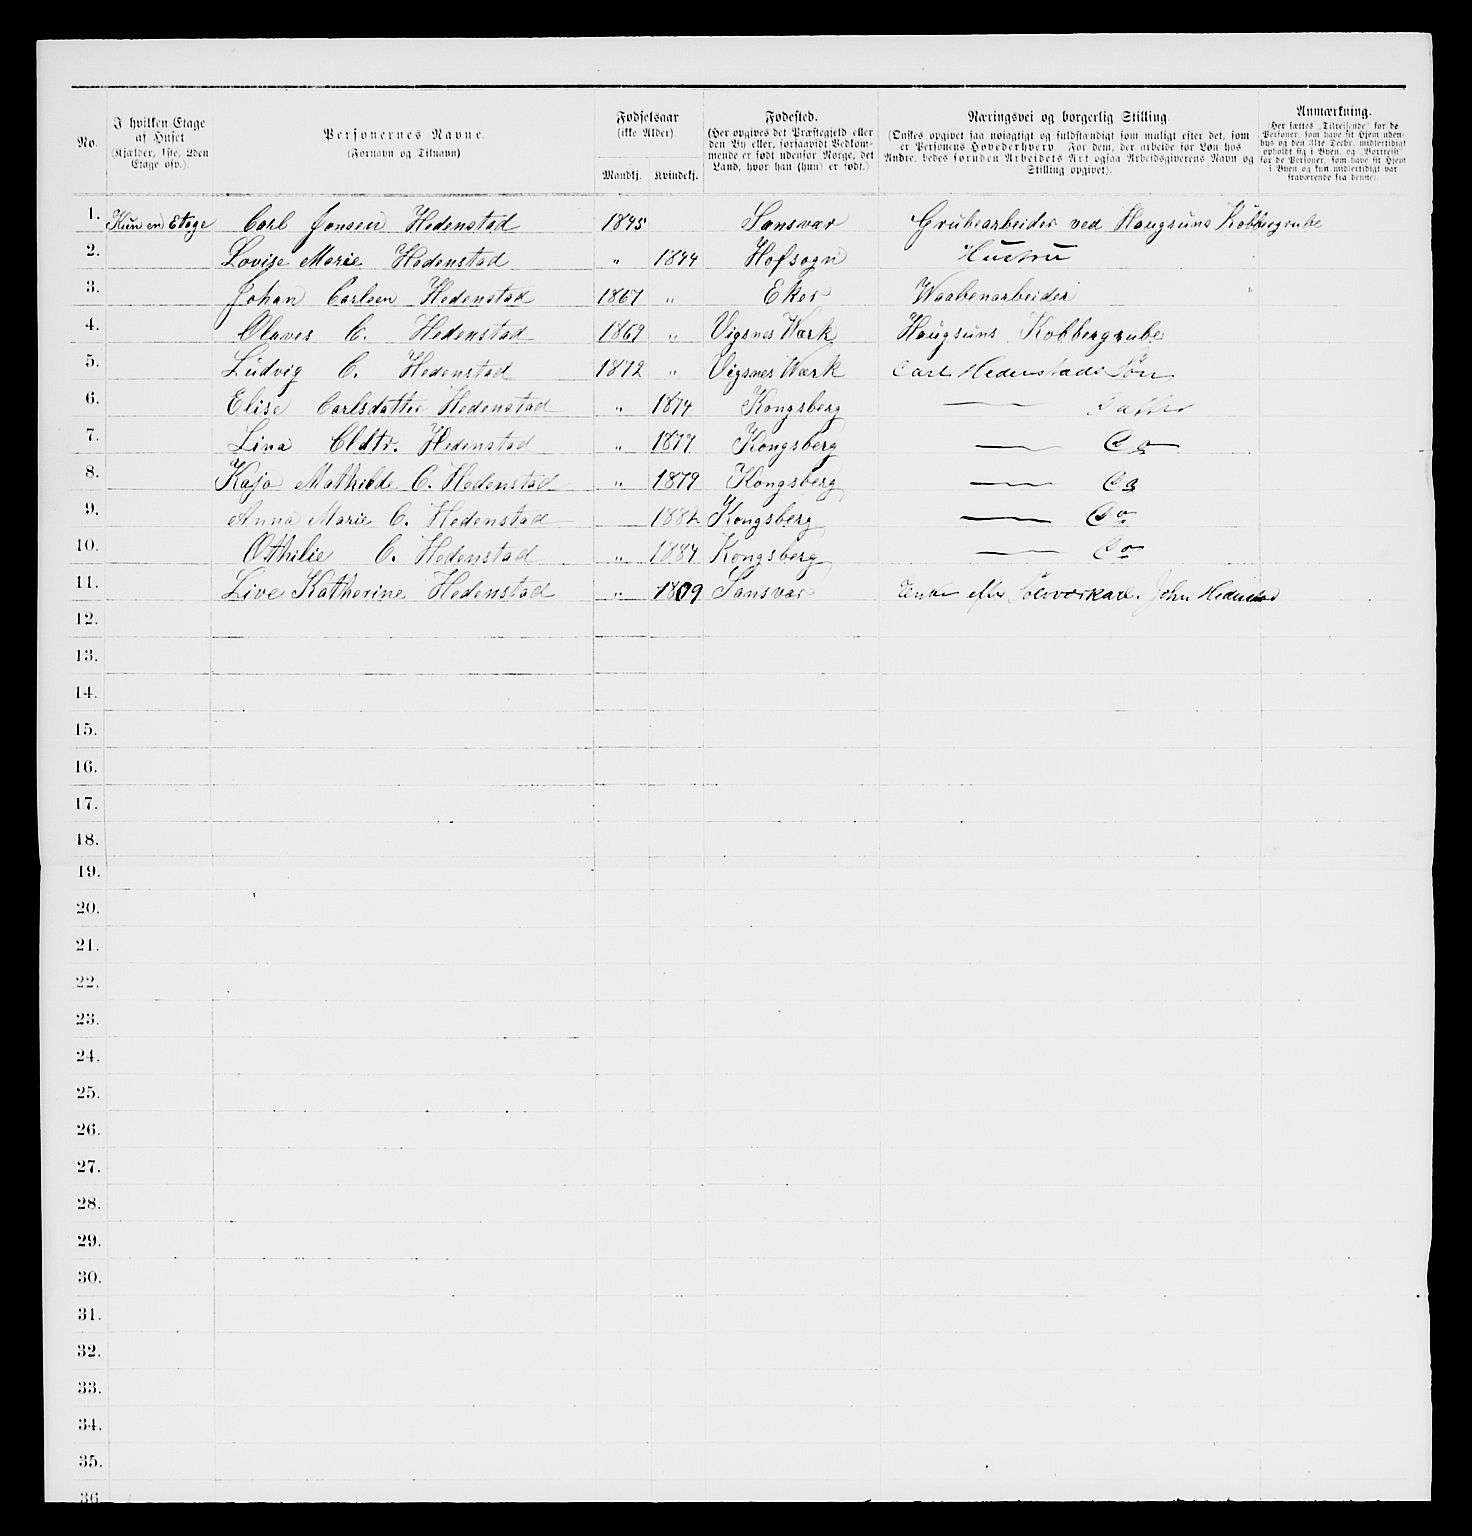 No.
I hvilken Etage af Huset (Kjælder, 1ste, 2den Etage osv.).
Personernes Navne. (Fornavn og Tilnavn)
Fødselsaar (ikke Alder)
Mandkj. Kvindekj.
Fødested. (Her opgives det Præstegjeld eller den By eller, forsaavidt Vedkommende er født udenfor Norge, det Land, hvor han (hun) er født.)
Næringsvei og borgerlig Stilling. (Ønskes opgivet saa nøiagtigt og fuldstændigt som muligt efter det, som er Personens Hovederhverv. For dem, der arbeide for Løn hos Andre, bedes foruden Arbeidets Art ogsaa Arbeidsgiverens Navn og Stilling opgivet).
Anmærkning. (Her sættes „Tilreisende" for de Personer, som have sit Hjem udenbys og den 31te Decbr. midlertidigt opholdt sig i Byen, og „Bortreist" for de Personer, som have sit Hjem i Byen og kun midlertidigt var fraværende fra denne).
1. Kun en Etage Carl Jonsen Hedenstad 1845 Sansvær Grubearbeider ved Haugsuns Kobbergrube
2. Lovise Marie Hedenstad „ 1844 Hofsogn Hustru
3. Johan Carlsen Hedenstad 1867 „ Eker Waabenarbeider
4. Olaves C. Hedenstad 1869 „ Vigsnes Værk Haugsuns Kobbergrube
5. Ludvig C. Hedenstad 1872 „ Vigsnes Værk Carl Hedenstads Søn
6. Elise Carlsdatter Hedenstad „ 1874 Kongsberg — Datter
7. Lina Cldtr. Hedenstad „ 1877 Kongsberg — Do
8. Kaja Mathilde C. Hedenstad „ 1879 Kongsberg — Do
9. Anna Marie C. Hedenstad 1882 Kongsberg — Do
10. Othilie C. Hedenstad „ 1884 Kongsberg — Do
11. Live Katherine Hedenstad „ 1809 Sansvær Enke efter Sølvværkarb. John Hedenstad
12.
13.
14.
15.
16.
17.
18.
19.
20.
21.
22.
23.
24.
25.
26.
27.
28.
29.
30.
31.
32.
33.
34.
35.
36